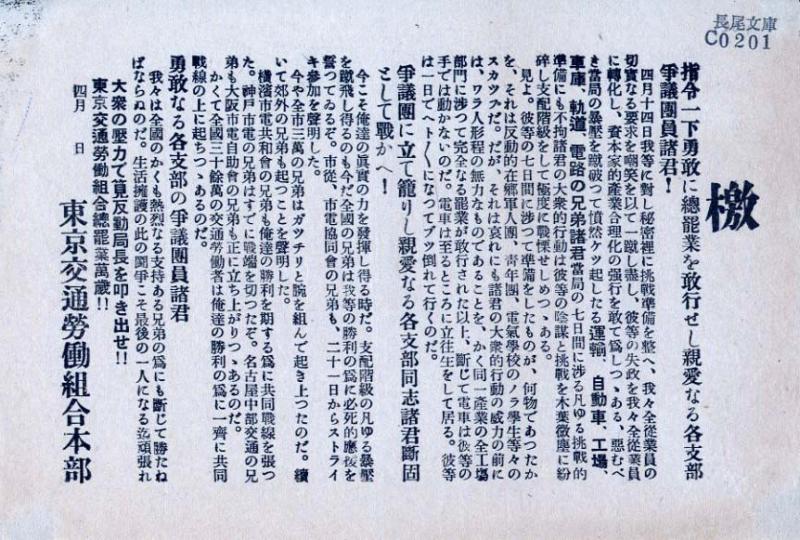 長尾文庫
C0201
檄
指令一下勇敢に總罷業を敢行せし親愛なる各支部
爭議團員諸君!
四月十四日我等に對し秘密裡に挑戰準備を整へ、我々全從業員の
切實なる要求を嘲笑を以て一蹴し盡し、彼等の失政を我々全從業員
に轉化し、資本家的産業合理化の强行を敢て爲しつゝある、惡むべ
き當局の暴壓を蹴破つて憤然ケツ起したる運輸、自動車、工場、
車庫、軌道、電路の兄弟諸君當局の七日間に渉る凡ゆる挑戰的
準備にも不拘諸君の大衆的行動は彼等の陰謀と挑戰を木葉微塵に紛
碎し支配階級をして極度に戰慄せしめつゝある。
見よ。彼等の七日間に渉つて準備をしたものが、何物であつたか
を、それは反動的在鄕軍人團、靑年團、電氣學校のノラ學生等々の
スカツプだ。だが、それは哀れにも諸君の大衆的行動の威力の前に
は、ワラ人形程の無力なものであることを、かく同一産業の全工場
部門に渉つて完全なる罷業が敢行された以上、斷じて電車は彼等の
手では動かないのだ。電車は至るところに立往生をして居る。彼等
は一日でヘト〱になつてブツ倒れて行くのだ。
爭議團に立て籠りし親愛なる各支部同志諸君斷固
として戰かへ!
今こそ俺達の眞實の力を發揮し得る時だ。支配階級の凡ゆる暴壓
を蹴飛し得るのも今だ全國の兄弟は我等の勝利の爲に必死的應援を
誓つてゐるぞ。市從、市電協同會の兄弟も、二十一日からストライ
キ參加を聲明した。
今や全市三萬の兄弟はガツチリと腕を組んで起き上つたのだ。續
いて郊外の兄弟も起つことを聲明した。
橫濱市電共和會の兄弟も俺達の勝利を期する爲に共同戰線を張つ
た。神戶市電の兄弟はすでに戰端を切つたぞ。名古屋中部交通の兄
弟も大阪市電自助會の兄弟も正に立ち上がりつゝあるのだ。
かくて全國三十餘萬の交通勞働者は俺達の勝利の爲に一齊に共同
戰線の上に起ちつゝあるのだ。
勇敢なる各支部の爭議團員諸君
我々は全國のかくも熱烈なる支持ある兄弟の爲にも斷じて勝たね
ばならぬのだ。生活擁護の此の鬪爭こそ最後の一人になる迄頑張れ
大衆の壓力で筧反動局長を叩き出せ!!
東京交通勞働組合總罷業萬歲!!
四月　日
東京交通勞働組合本部